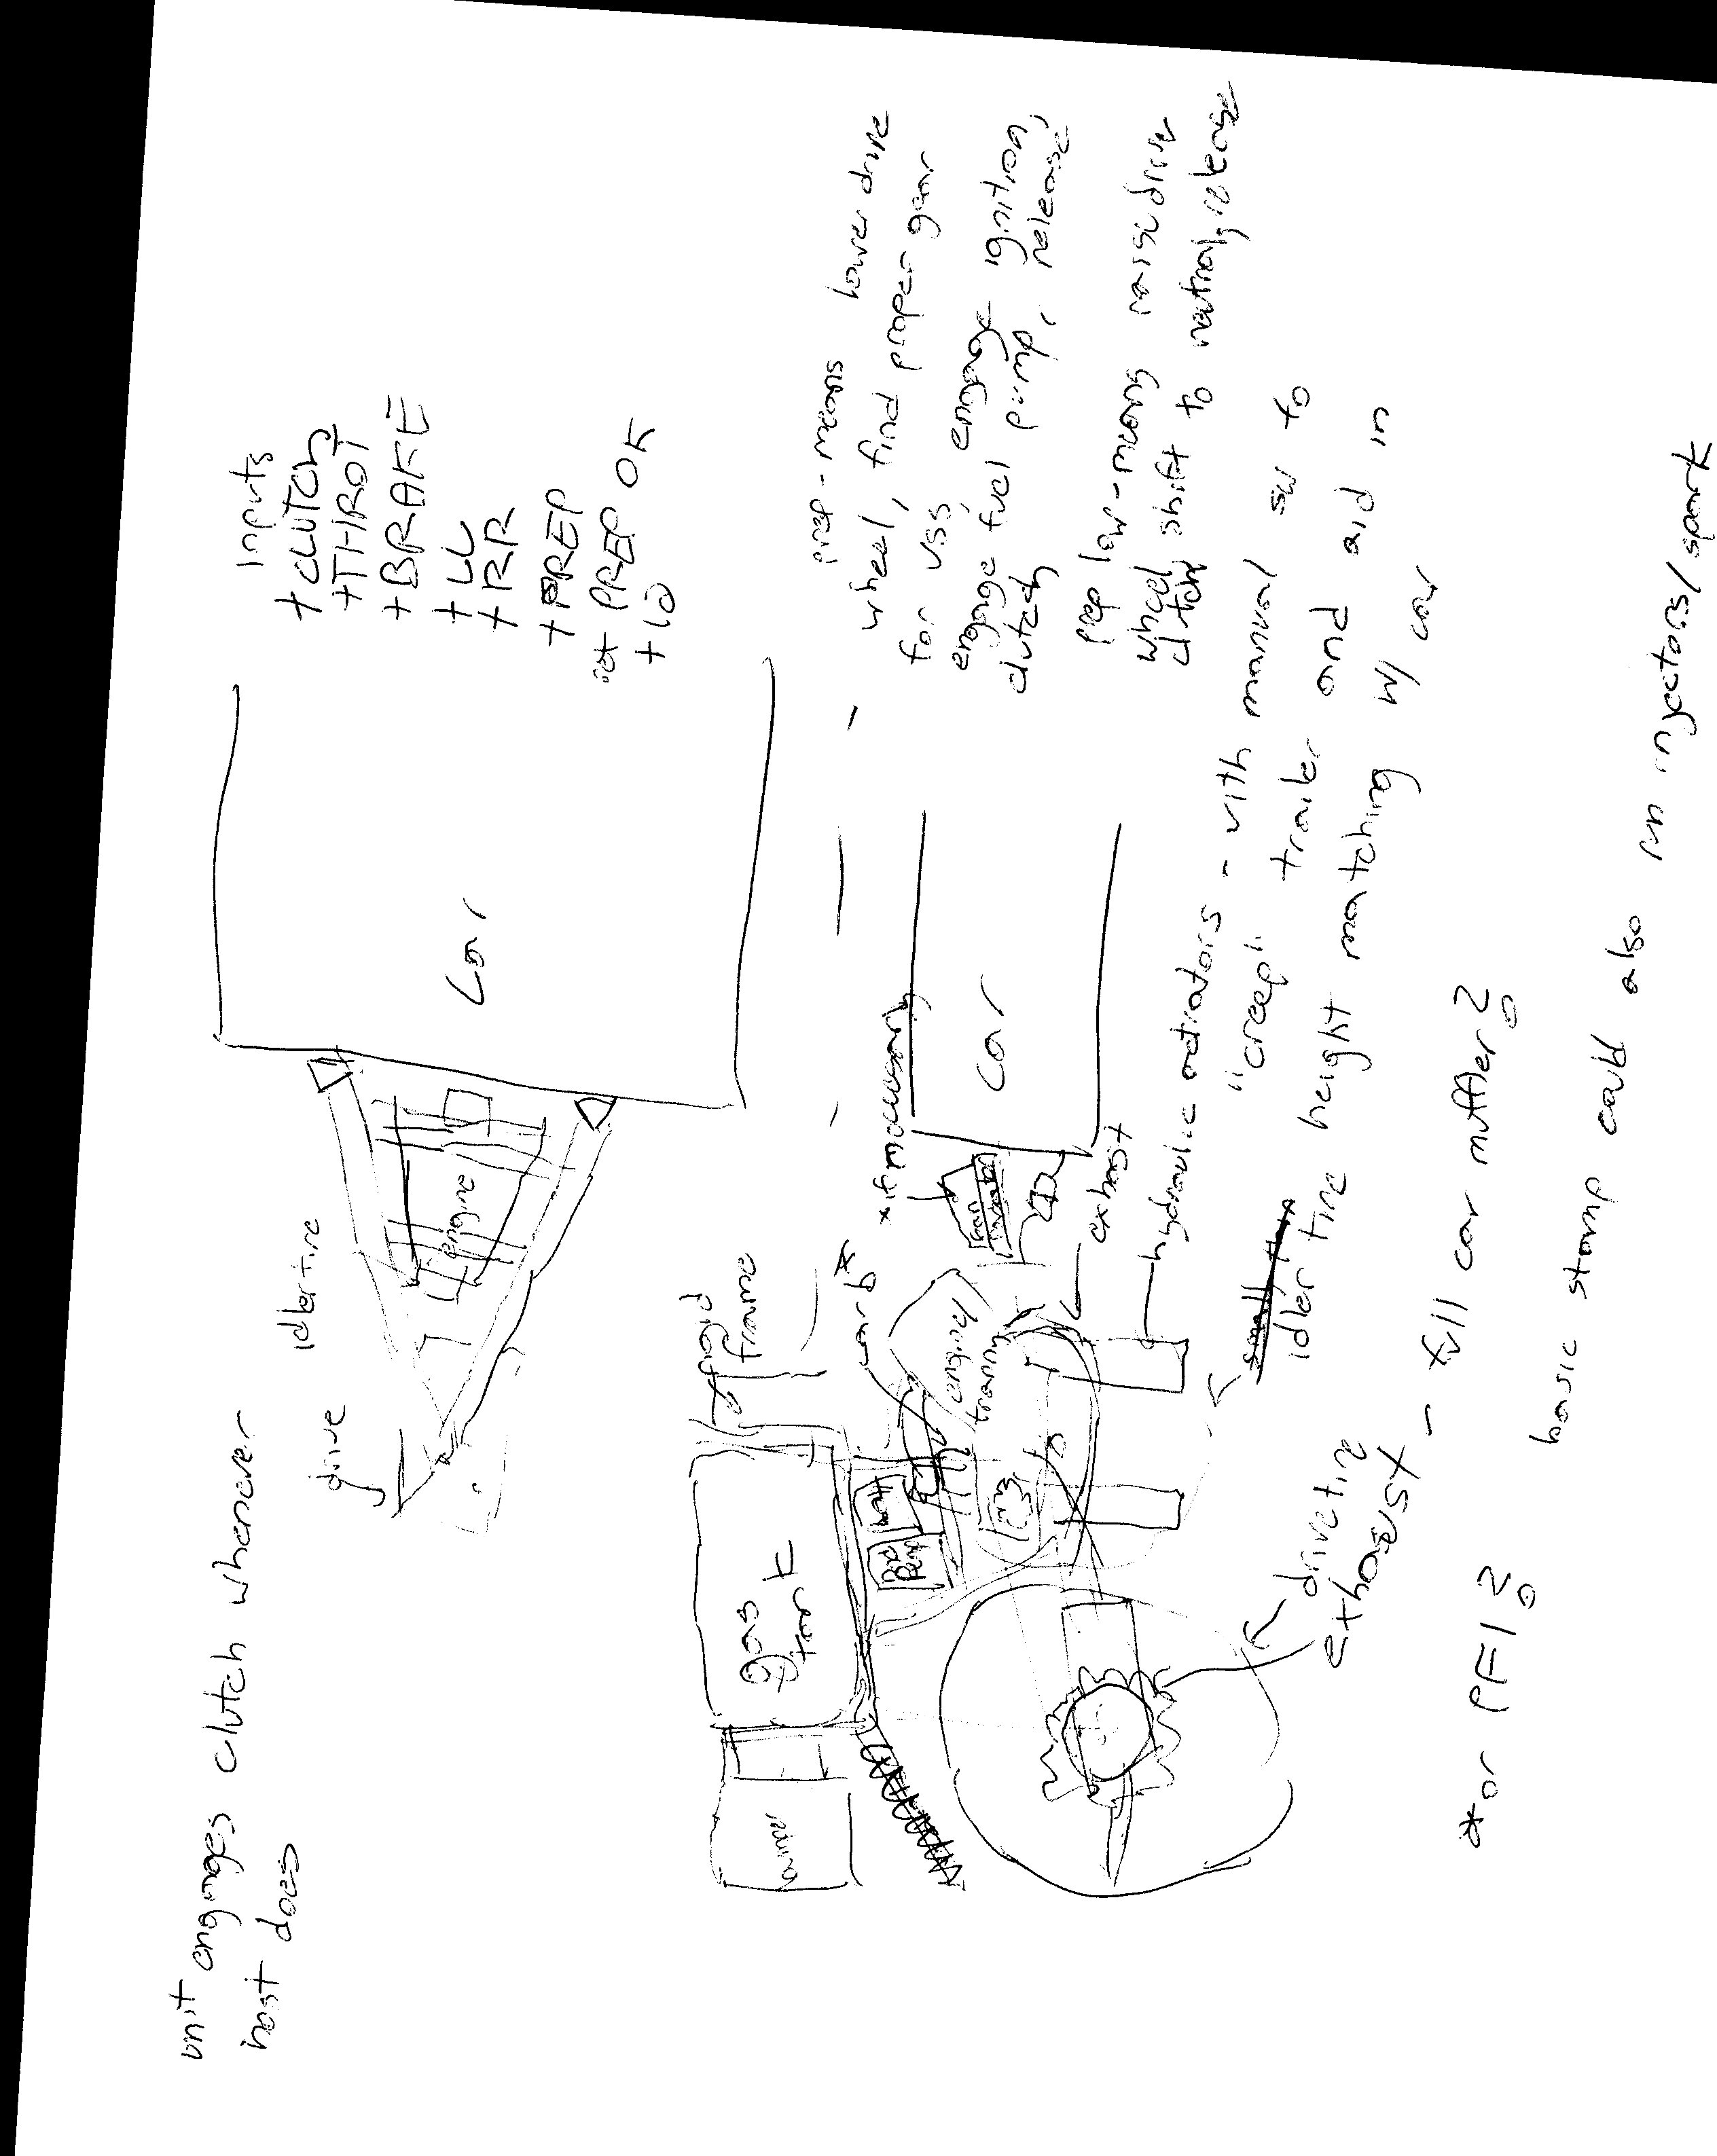 unit engages clutch whenever
host does
drive
idler tire
engine
Car
Inputs
+ CLUTCH
+ THROT
+ BRAKE
+ LL
+ RR
+ PREP
out PREP OK
+ 12
rigid
frame
gas
tank
batt
carb *
engine
tranny
* if necessary
Car
exhaust
prep - means lower drive
wheel, find proper gear
for VSS, engage ignition,
engage fuel pump, release
clutch
prep low - means raise drive
wheel shift to neutral, release
clutch
hydraulic actuators - with manual sw to
"creep" trailer and aid in
idler tire height matching w/ car
drive tire
exhaust - full car muffler?
* or PFI?
basic stamp could also run injectors/spark